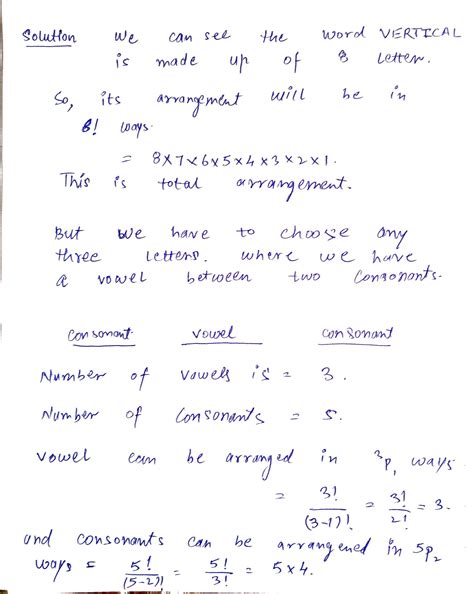 Solution We can see the word VERTICAL
is made up of 8 letters.
So, its arrangement will be in
8! ways.
= 8×7×6×5×4×3×2×1.
This is total arrangement.
But we have to choose any
three letters. where we have
a vowel between two Consonants.
Consonant vowel consonant
Number of vowels is = 3.
Number of Consonants = 5.
vowel can be arranged in ³P₁ ways
= 3!/(3-1)! = 3!/2! = 3.
and consonants can be arrangened in 5P₂
ways = 5!/(5-2)! = 5!/3! = 5×4.